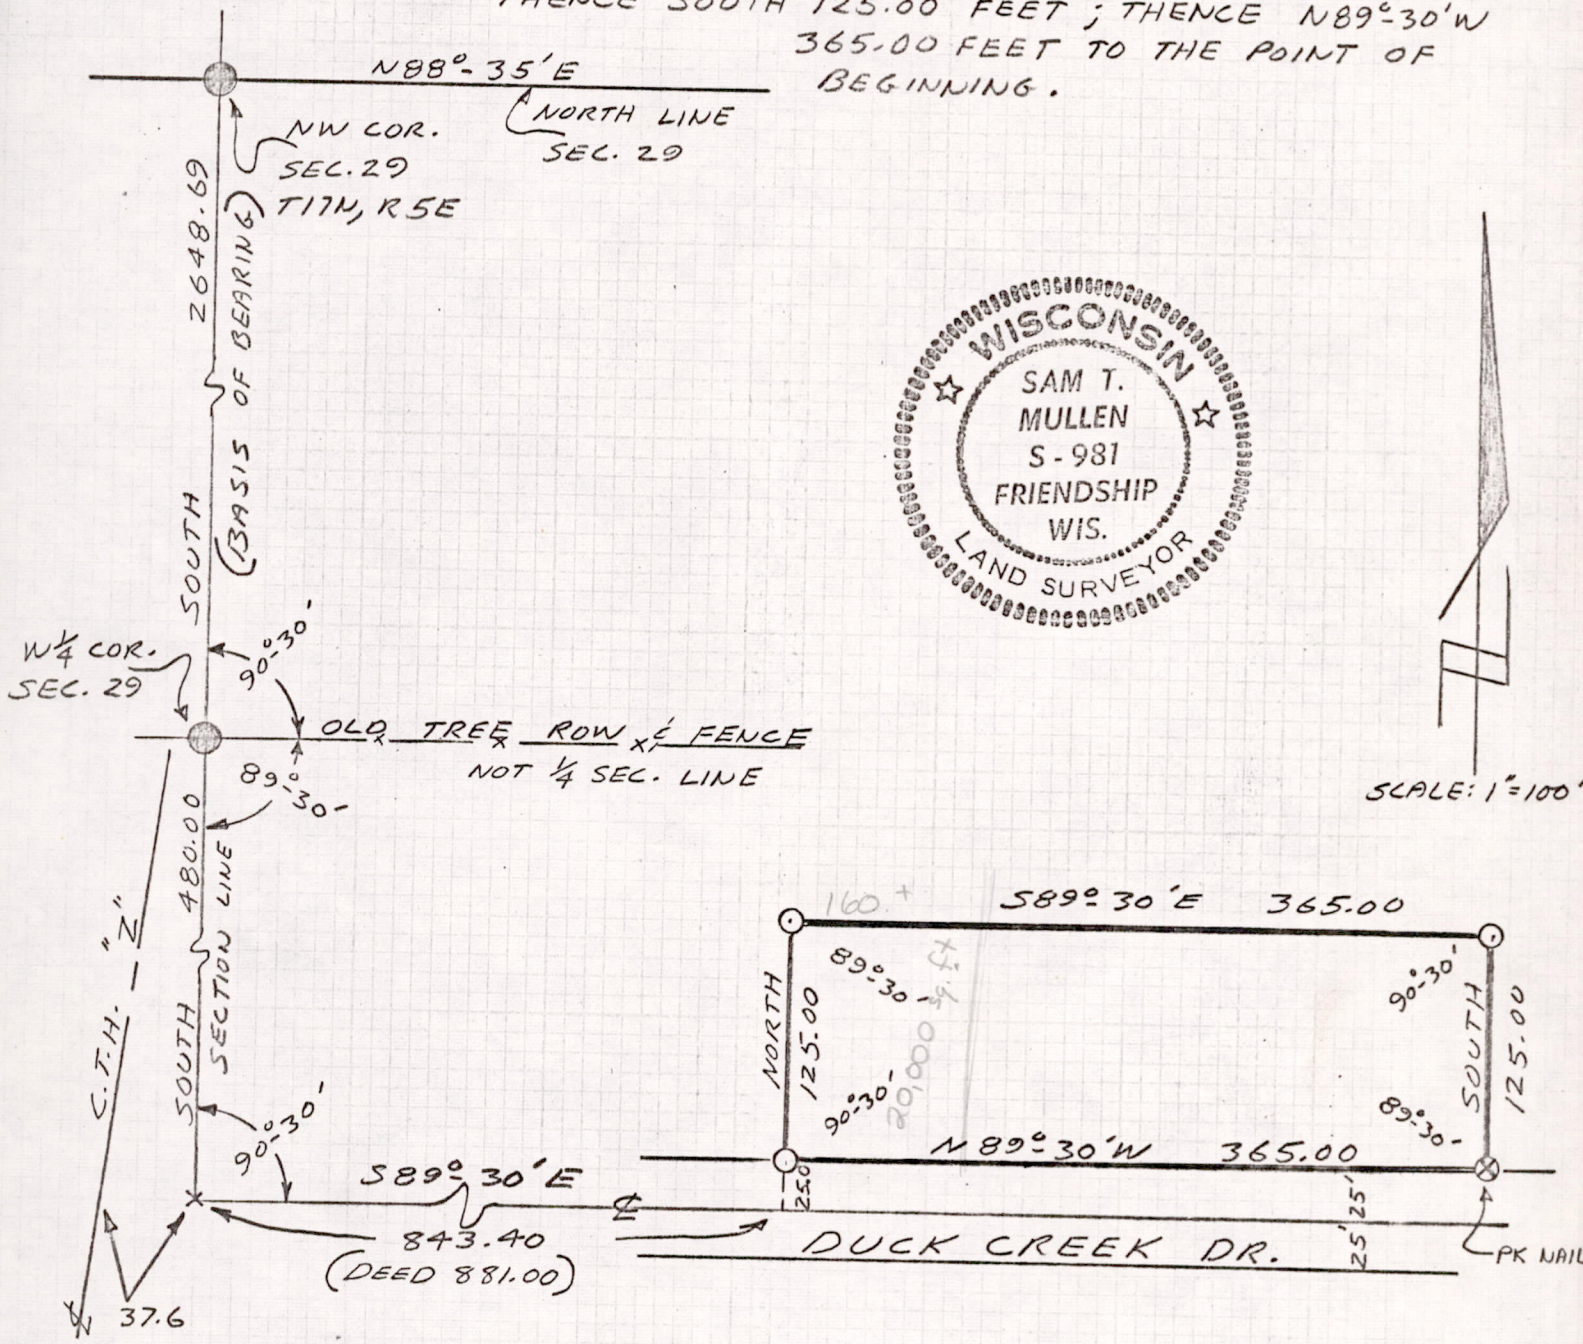 THENCE SOUTH 125.00 FEET ; THENCE N89°-30'W
365.00 FEET TO THE POINT OF
BEGINNING.
N88°-35'E
NORTH LINE
SEC. 29
NW COR.
SEC. 29
T17N, R5E
2648.69
SOUTH
(BASIS OF BEARING)
WISCONSIN
SAM T.
MULLEN
S-981
FRIENDSHIP
WIS.
LAND SURVEYOR
W 1/4 COR.
SEC. 29
90°-30'
OLD TREE ROW & FENCE
NOT 1/4 SEC. LINE
89°-30'
SCALE: 1"=100'
480.00
SOUTH
SECTION LINE
C.T.H. "Z"
90°-30'
S89°-30'E
843.40
(DEED 881.00)
37.6
160.+
S89°-30'E 365.00
89°-30'
90°-30'
NORTH
125.00
20,000 sq. ft
SOUTH
125.00
90°-30'
89°-30'
N89°-30'W 365.00
25.0
25'
25'
DUCK CREEK DR.
PK NAIL